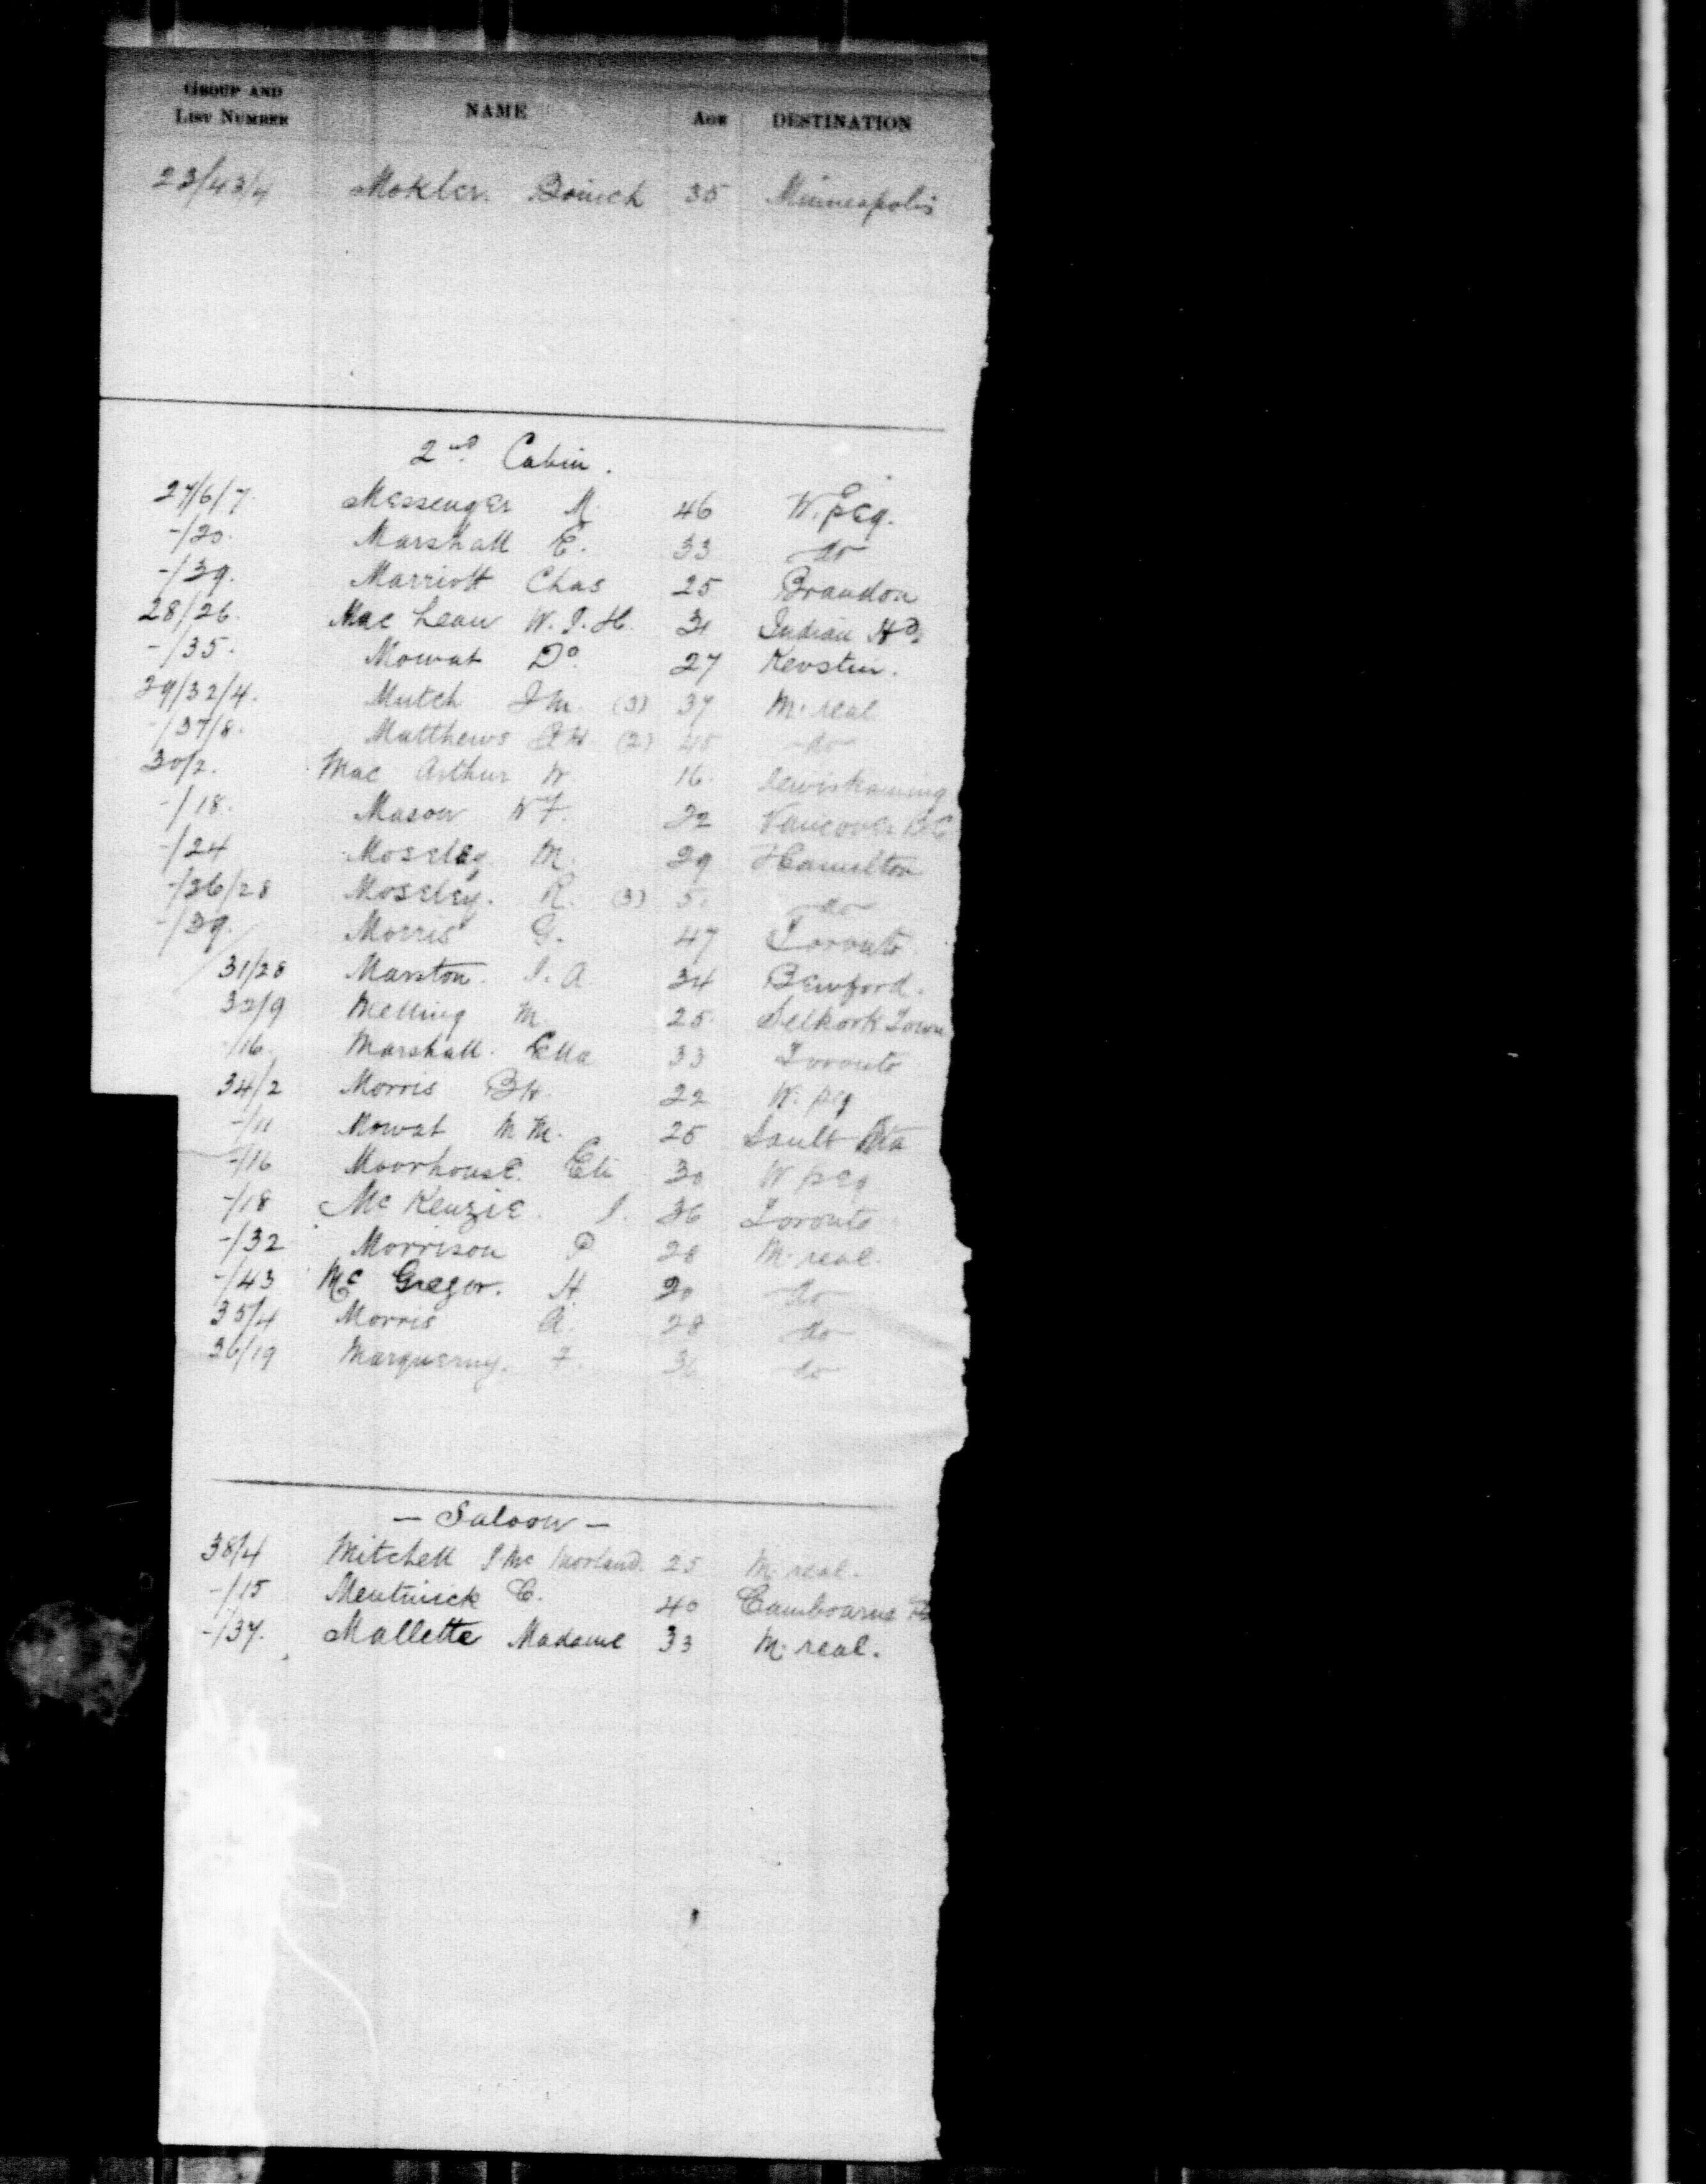 GROUP AND LIST NUMBER NAME AGE DESTINATION
23/43/4 Mokler. 35 Minneapolis
2nd Cabin.
27/6/7. Messenger M. 46 W.peg.
-/20. Marshall E. 33 do
-/39. Marriott Chas 25 Brandon
28/26. Mac Lean W.J.H. 31 Indian Hd
-/35. Mowat Do. 27
29/32/4. Mutch J.M. (3) 37 M.real
-/37/8. Matthews (2) 45 -do-
30/2. Mac Arthur W. 16.
-/18. Mason W F. 22 Vancouver B.C.
-/24 Moseley M. 29 Hamilton
-/26/28 Moseley. R. (3) 5. do
-/39. Morris G. 47 Toronto
31/28 Marston. J.A. 34
32/9 Melling M. 25. Selkirk Town
-/16. Marshall. Ella 33 Toronto
34/2 Morris BH. 22 W.peg
-/11 Mowat M M. 25 Sault Sta
-/16 Moorhouse. Eli 30 W peg
-/18 Mc Kenzie. J. 36 Toronto
-/32 Morrison P 28 M.real.
-/43 Mc Gregor. H 20 do
35/4 Morris A. 28 do
36/19 F. 36 do
- Saloon -
38/4 Mitchell J. Mc Morland. 25 M.real.
-/15 C. 40
-/37. Mallette Madame 33 M.real.